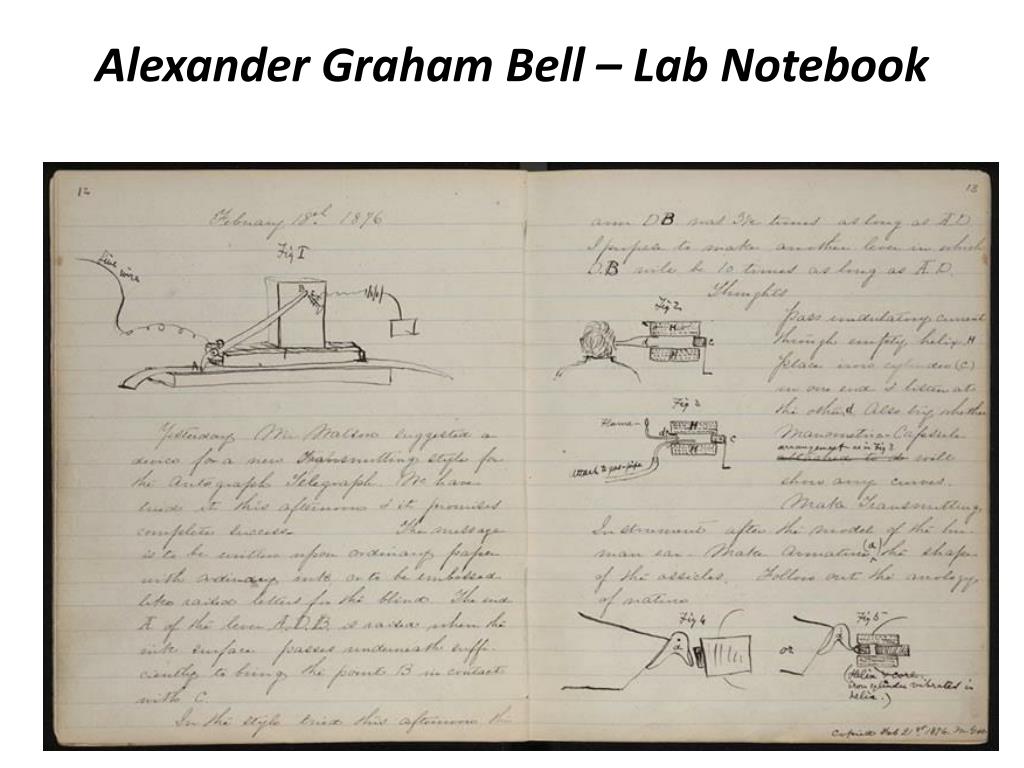 Alexander Graham Bell – Lab Notebook
12
February 18th 1876
Fig 1
line wire
B
A
Yesterday Mr Watson suggested a
device for a new Transmitting style for
the Autograph Telegraph. We have
tried it this afternoon & it promises
complete success. The message
is to be written upon ordinary paper
with ordinary ink or to be embossed
like raised letters for the blind. The end
A of the lever A.D.B. is raised when the
ink surface passes underneath suffi-
ciently to bring the point B in contact
with C.
In the style tried this afternoon the
13
arm D B was 3½ times as long as A D
I propose to make another lever in which
D.B will be 10 times as long as A.D.
Thoughts
Fig 2
H
C
H
Pass undulatory current
through empty helix H
Place iron cylinder (C)
in one end & listen at
the other. Also try whether
Manometric Capsule
arrangement as in Fig 3
attached to will
show any curves.
Fig 3
Flame
H
C
H
attach to gas-pipe
Make Transmitting
Instrument after the model of the hu-
man ear. Make armature (a) the shape
of the ossicles. Follow out the analogy
of nature
Fig 4
a
or
Fig 5
a
(Helix & core.
iron cylinder vibrates in
helix.)
Copied Feb 21st 1876.